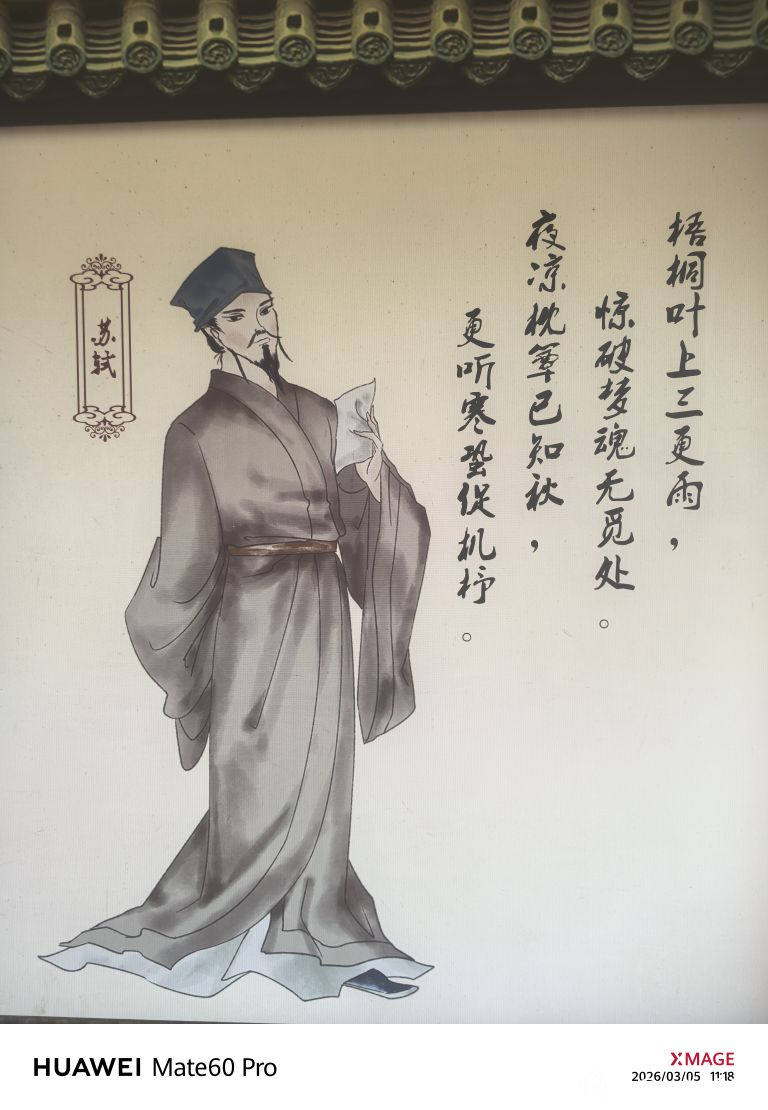 梧桐叶上三更雨，
惊破梦魂无觅处。
夜凉枕簟已知秋，
更听寒蛩促机杼。
苏轼
HUAWEI Mate60 Pro
XMAGE
2026/03/05 11:18